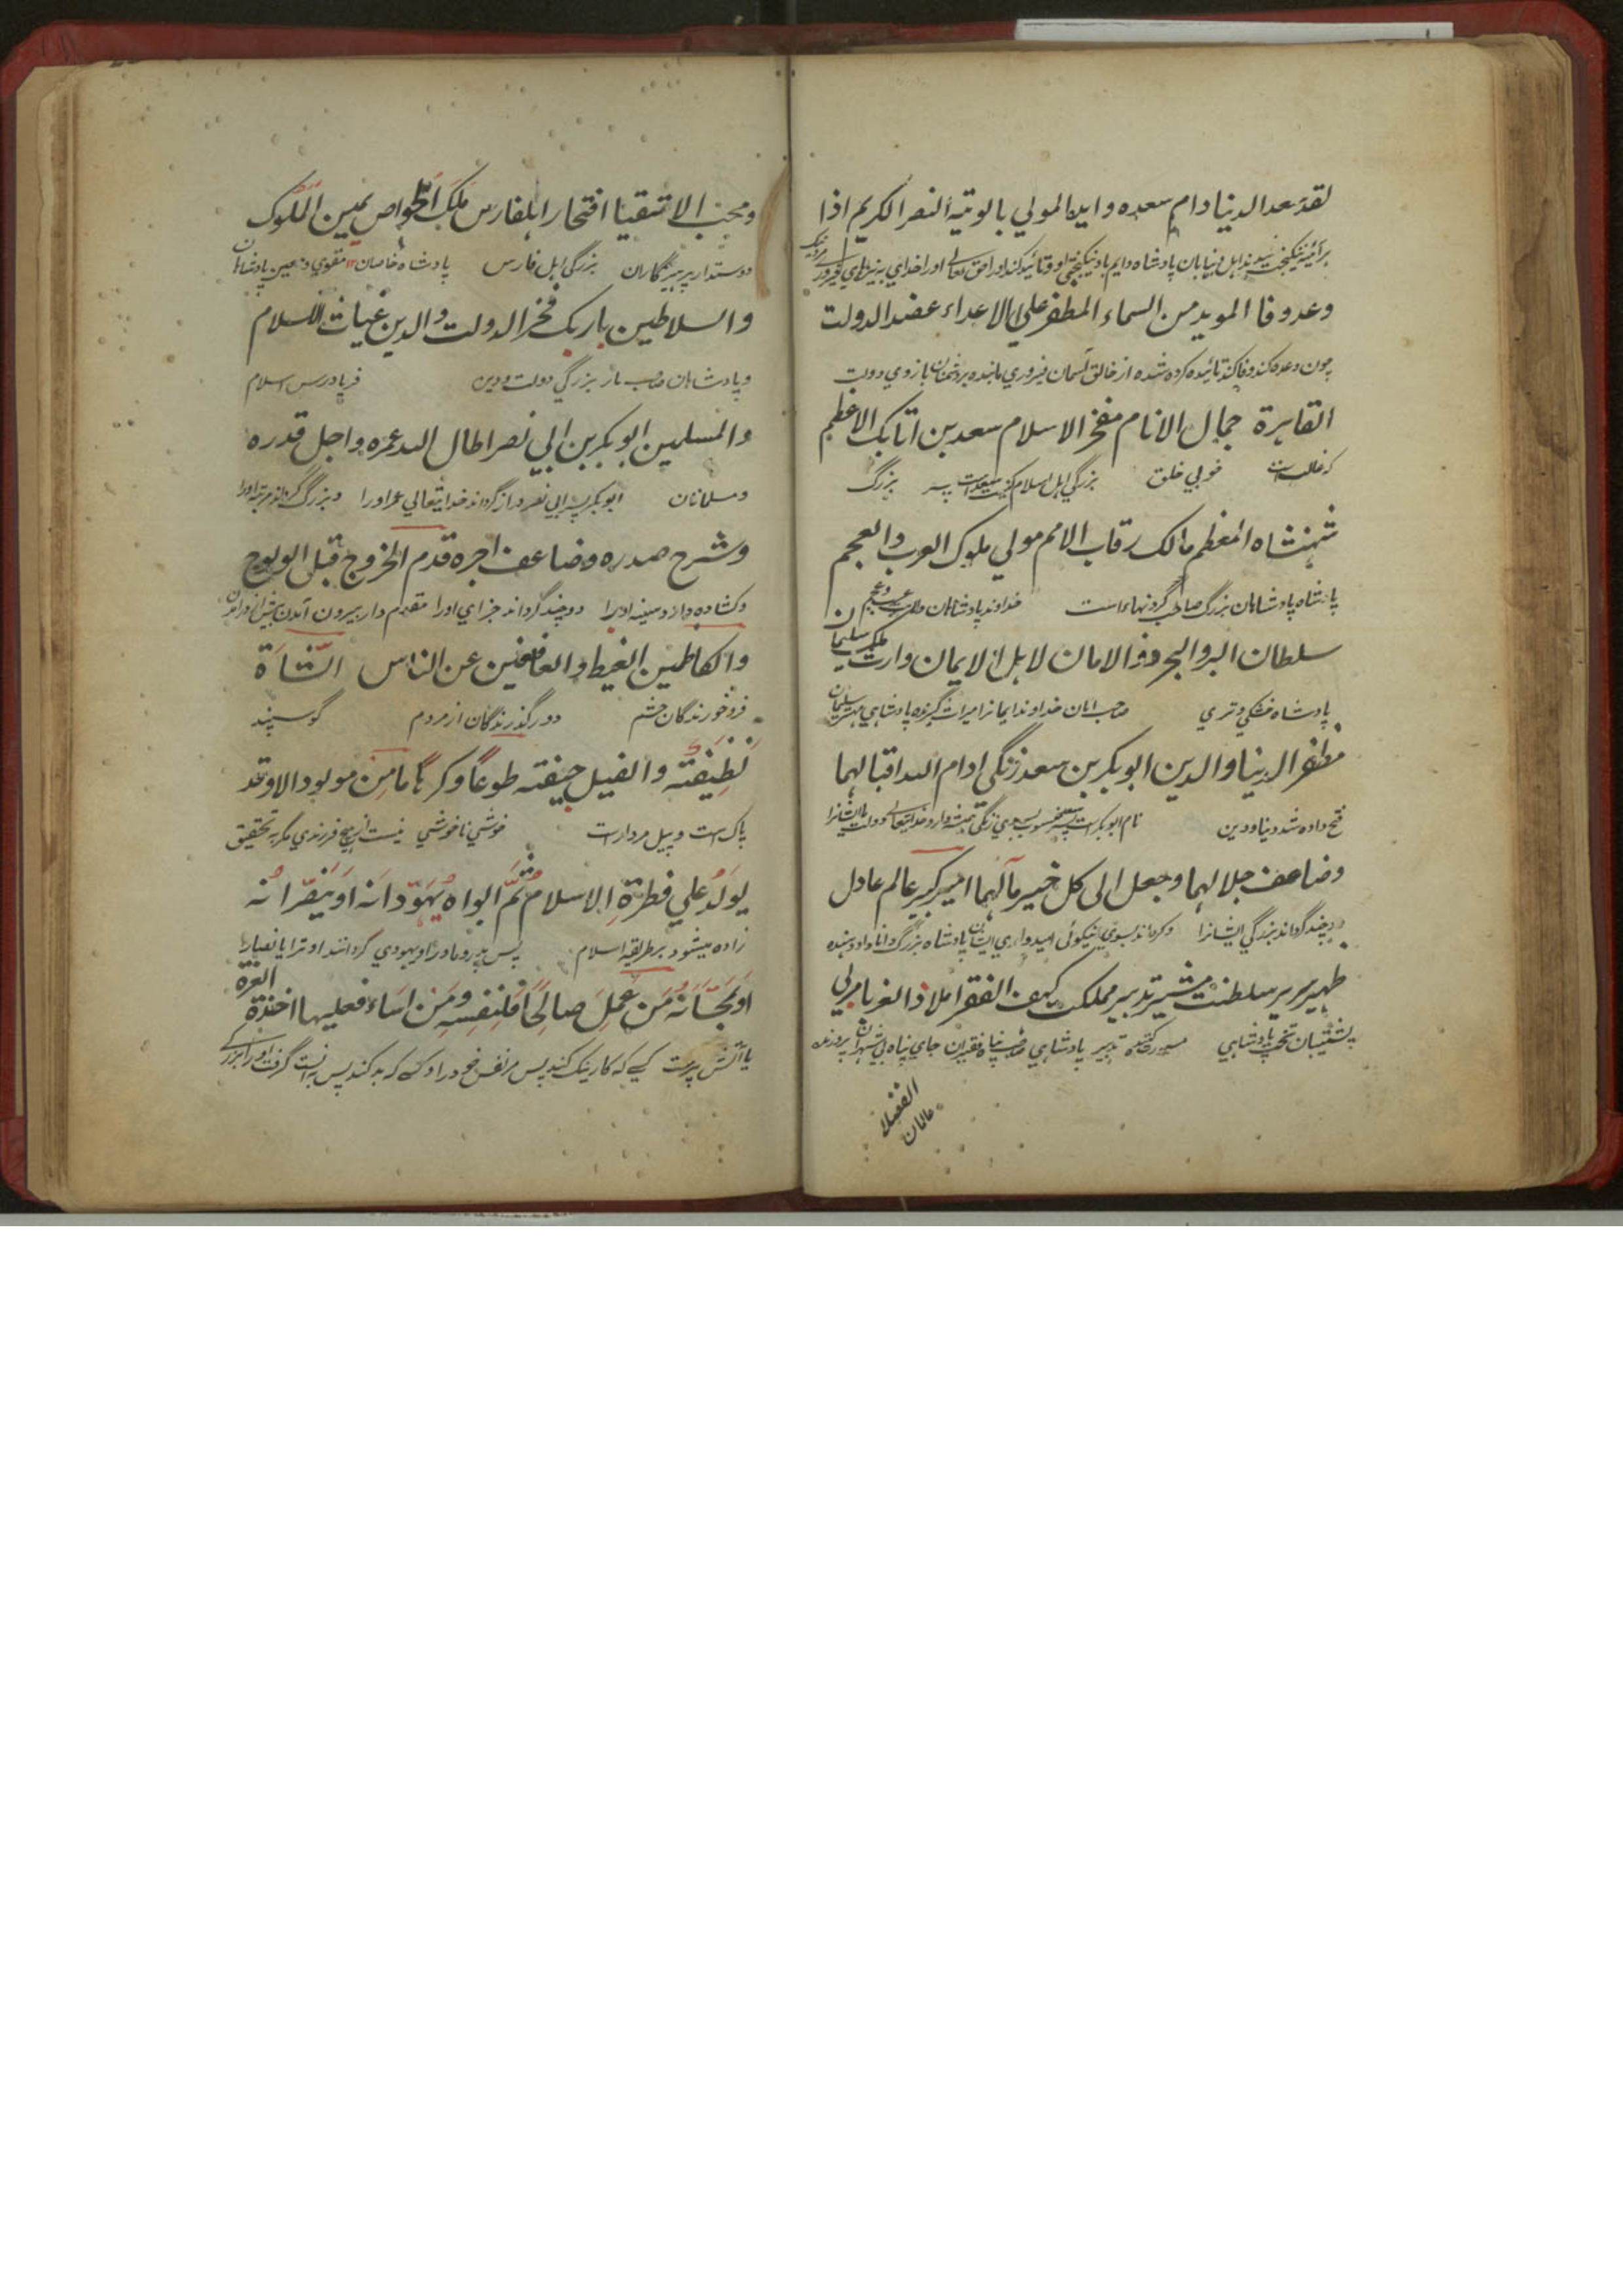 لقد سعد الدنیا دام سعده وایدالمولي بالویتة النصر الکریم اذا
برآئینه نیکبخت شد اهل دنیا بان پادشاه دایم باد نیکبختي او و تائید کند اورا حق تعالی
وعد وفا المویدمن السماء المظفر علي الاعداء عضدالدولت
چون وعده کند وفا کند تائیده کرده شده از خالق آسمان فیروزي مانده بر دشمنان بازوي دولت
القاهرة جمال الانام مفخر الاسلام سعد بن اتابک الاعظم
که غالبست خوبي خلق بزرگي اهل اسلام پسر بزرگ
شهنشاه المعظم مالک رقاب الامم مولي ملوک العرب والعجم
پادشاه پادشاهان بزرگ صاحب گردنهاء است خداوند پادشاهان ملک عرب و عجم
سلطان البر والبحر ذو الامان لاهل الایمان وارث ملک سلیمان
پادشاه خشکي و تري صاحب امان خداوند ایمانرا میراث گیرنده پادشاهي مهتر سلیمان
مظفر الدنیا والدین ابوبکر بن سعد زنگی ادام الله اقبالهما
فتح داده شد دنیا و دین نام ابوبکر است
وضاعف جلالهما وجعل الی کل خیر مآلهما امیر کبیر عالم عادل
دوچند گرداند بزرگي ایشانرا وگرداند بسوي نیکوئی امیدواري ایشان پادشاه بزرگ دانا داد دهنده
ظهیر سریر سلطنت مشیر تدبیر مملکت کهف الفقرا ملاذ الغربا مربي
پشتیبان تخت پادشاهي تدبیر پادشاهي صاحب پناه فقیران جاي پناه
الفضلا
عالمان
ومحب الاتقیا افتخار اهلفارس ملک الخواص یمین الملوک
دوستدار پرهیزگاران بزرگي اهل فارس پادشاه خاصان مقوي و معین پادشاهان
والسلاطین باربک فخر الدولت والدین غیاث الاسلام
و پادشاهان صاحب بار بزرگي دولت و دین فریادرس اسلام
والمسلمین ابوبکر بن ابي نصر اطال الله عمره واجل قدره
ومسلمانان ابوبکر پسر ابي نصر دراز گرداند خدایتعالي عمر اورا و بزرگ گرداند مرتبه اورا
وشرح صدره وضاعف اجره قدم الخروج قبل الولوج
وکشاده دارد سینه اورا دوچند گرداند جزاي اورا مقدم دار بیرون آمدن پیش از در آمدن
والکاظمین الغیظ والعافین عن الناس الشاة
فروخورندگان خشم دور گذرندگان از مردم گوسپند
نظیفته والفیل جیفته طوعا وکرها مامن مولود الا وقد
پاک است و پیل مردارست خوشي ناخوشي نیست هیچ فرزندي مگر به تحقیق
یولد علي فطرة الاسلام ثم ابواه یهودانه او ینصرانه
زاده میشود بر طریقه اسلام پس پدر و مادر او یهودي گردانند او ترا یا نصارا
او یمجسانه من عمل صالحا فلنفسه ومن اساء فعلیها اخذة العزة
یا آتش پرست کسے که کار نیک کند پس مر نفس خود را و کسے که بد کند پس بد است گرفت اورا بزرگے